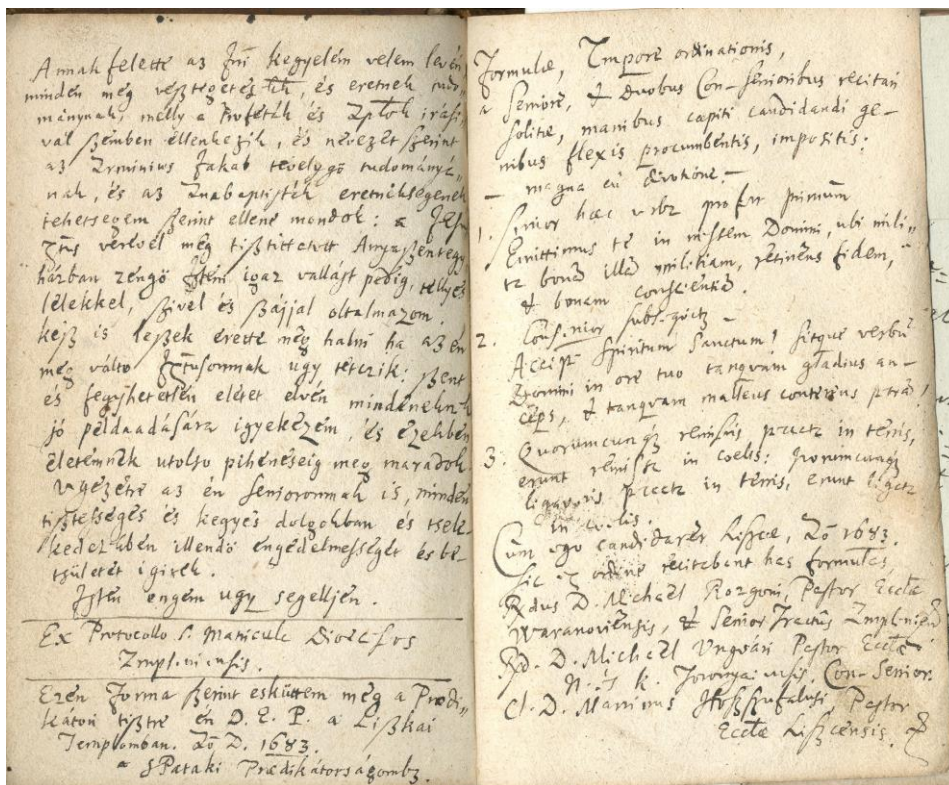 Annak felette az Jni kegyelem velem levén,
minden meg vesztegetes és eretnek tudo„
mánynak, melly a Profeták és irási„
val szemben ellenkezik, és nevezet szerint
az Arminius Jakab tevelygö tudományá„
nak, és az Anabaptisták eretnekségenek
tehetsegem szerint ellene mondok: a Jesu
Xtus verevel meg tisztittatott Anyaszentegy
házban zengö Isten igaz vallást pedig, tellyes
lélekkel, szivel és szájjal oltalmazom.
kész is leszek erette meg halni ha az én
megválto Xtusomnak ugy tetczik: szent
és fegyhetetlen életet elven mindeneknek
jó példaadására igyekezem, és ezekben
életemnek utolso pihenéseig meg maradok
vegezetre az én senioromnak is, minden
tisztességes és kegyes dolgokban és tsele
kedezetben illendö engedelmességet és be-
tsületet igirek.
Isten engem ugy segelljen.
Ex Protocollo S. Matricula Dioeceseos
Zmpleniensis.
Ezen forma szerint esküttem meg a Prædi„
katori tisztre én D. E. P. a Liszkai
Templomban. Ao D. 1683.
a SPataki Prædikátorságombz.
Formulæ, Tmpore ordinationis,
a Seniore, & duobus Con-senioribus recitari
solitæ, manibus capiti candidandi ge-
nibus flexis procumbentis, impositis:
magna cū devotione.
1. Senior hæc verba profert primum
Emittimus te in messem Domini, ubi mili-
tz bonā illā militiam, retinens fidem,
& bonam conscientiā.
2. Cons.nior subsequitz
Accipe Spiritum Sanctum! sitque verbū
Domini in ore tuo tanqvam gladius an-
ceps, & tanqvam malleus conterens petrā!
3. Quorumcunqz remiseris peccta in terris,
erunt remissa in coelis: quorumcunqz
ligaveris peccta in terris, erunt ligata
in coelis.
Cum ego candidarer Liszcæ, Ao 1683.
sic ex ordine recitabant has formulas
Rdus D. Michaël Rozgoni, Pastor Eccæ
Waranoviensis, & Senior Tractus Zmpleniens
Rd. D. Michaël Ungvári Pastor Eccæ
Con-Senior.
Cl. D. Martinus Hosszufalusi, Pastor
Eccæ Liszcensis.